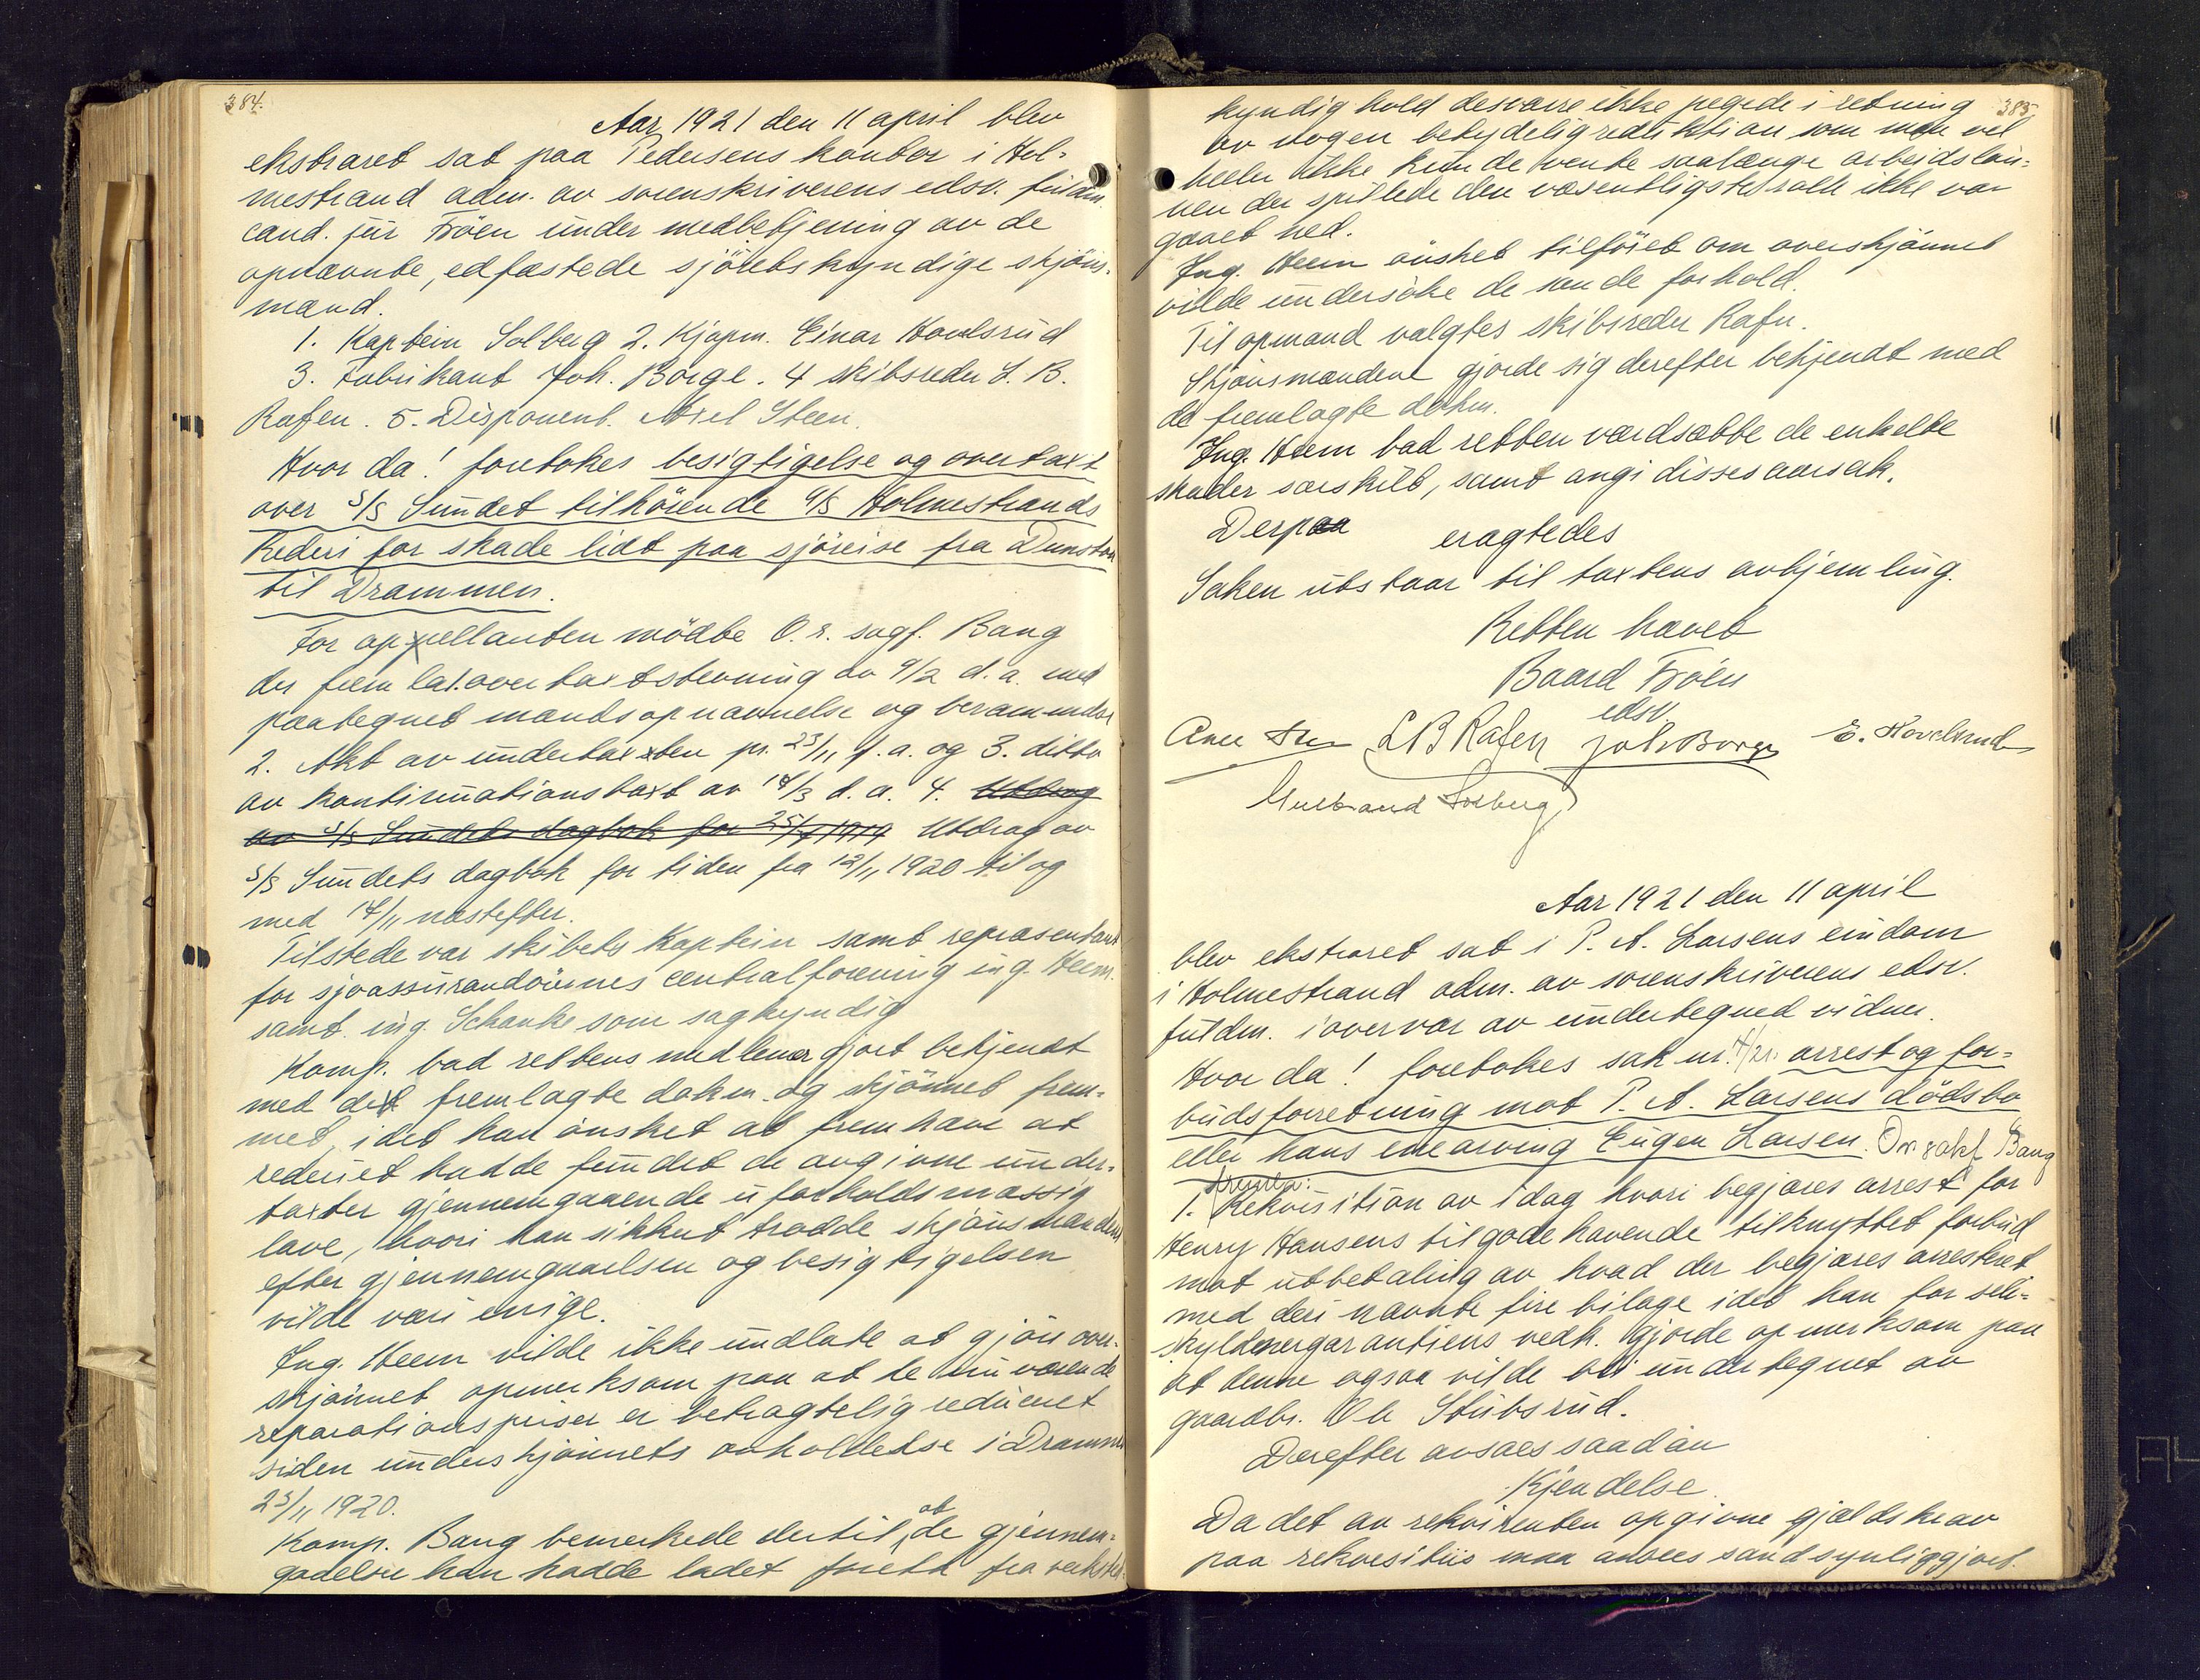 384.
Aar 1921 den 11 april blev
ekstraret sat paa Pedersens kontor i Hol=
mestrand adm. av sorenskriverens edsv. fuldm.
cand. jur Fröen under medbetjening av de
opnævnte, edfæstede sjöretskyndige skjöns=
mænd.
1. Kaptein Solberg 2. Kjøpm. Einar Hovelsrud
3. Fabrikant Joh. Borge. 4 skibsreder L. B.
Rafen. 5. Disponent. Axel Steen.
Hvor da! foretokes besigtigelse og overtaxt
over S/S Sundet tilhörende A/S Holmestrands
Rederi for skade lidt paa sjöreise fra Dunston
til Drammen.
For appellanten mödte O. r. sagf. Bang
der frem la 1. overtaxtstevning av 9/2 d. a. med
paategnet mandsopnævnelse og berammelse
2. Akt av undertaxten pr. 23/11 f. a. og 3. ditto
av kontinuationstaxt av 14/3 d. a. 4. Utdrag
av S/S Sundets dagbok for 25/7 1919 Utdrag av
S/S Sundets dagbok for tiden fra 12/11 1920 til og
med 14/11 næstefter.
Tilstede var skibets Kaptein samt repræsentant
for sjøassurandörernes centralforening ing. Heem.
samt ing. Schanke som sagkyndig
Komp. bad rettens medlemer gjort bekjendt
med det fremlagte dokm. og skjönnet frem=
met, idet han önsket at fremhæve at
rederiet hadde fundet de angivne under=
taxter gjennemgaaende uforholdsmæssig
lave, hvori han sikkert trodde skjönsmændene
efter gjennemgaaelsen og besigtigelsen
vilde være enige.
Ing. Heem vilde ikke undlate at gjöre over=
skjönnet opmerksom paa at de nuværende
reparationspriser er betragtelig reduceret
siden underskjönnets avholdelse i Drammen
23/11 1920.
Komp. Bang bemerkede dertil, at de gjennem=
gaaelser han hadde ladet foreta fra verksted=
385
kyndig hold desværre ikke pegede i retning
av nogen betydelig reduktion som man vel
heller ikke kunde vente saalænge arbeidslön=
nen der spillede den væsentligste rolle ikke var
gaaet ned.
Ing. Heem önsket tilföiet om overskjönnet
vilde undersöke de senede forhold.
Til opmand valgtes skibsreder Rafn.
Skjönsmændene gjorde sig derefter bekjendt med
de fremlagte dokm.
Ing. Heem bad retten værdsætte de enkelte
skader særskilt, samt angi disses aarsak.
Derpaa eragtedes
Saken utstaar til taxtens avhjemling.
Retten hævet
Baard Fröen
edsv.
L B Rafen Joh Borge E. Hovelsrud
Gulbrand Solberg
Aar 1921 den 11 april
blev ekstraret sat i P. A. Larsens eiendom
i Holmestrand adm. av sorenskriverens edsv.
fuldm. i overvær av undertegned vidner.
Hvor da! foretokes sak nr. 4/21. arrest og for=
budsforretning mot P. A. Larsens dödsbo
eller hans enearving Eugen Larsen. Or. sakf Bang
fremla:
1. Rekvisition av idag hvori begjæres arrest for
Henry Hansens tilgodehavende tilknyttet forbud
mot utbetaling av hvad der begjæres arresteret
med deri nævnte fire bilage idet han for selv=
skyldnergarantiens vedk. gjorde opmerksom paa
at denne ogsaa vilde bli undertegnet av
gaardbr. Ole Stubsrud.
Derefter avsaes saadan
Kjendelse
Da det av rekvirenten opgivne gjældskrav
paa rekvisitus maa ansees sandsynliggjort.